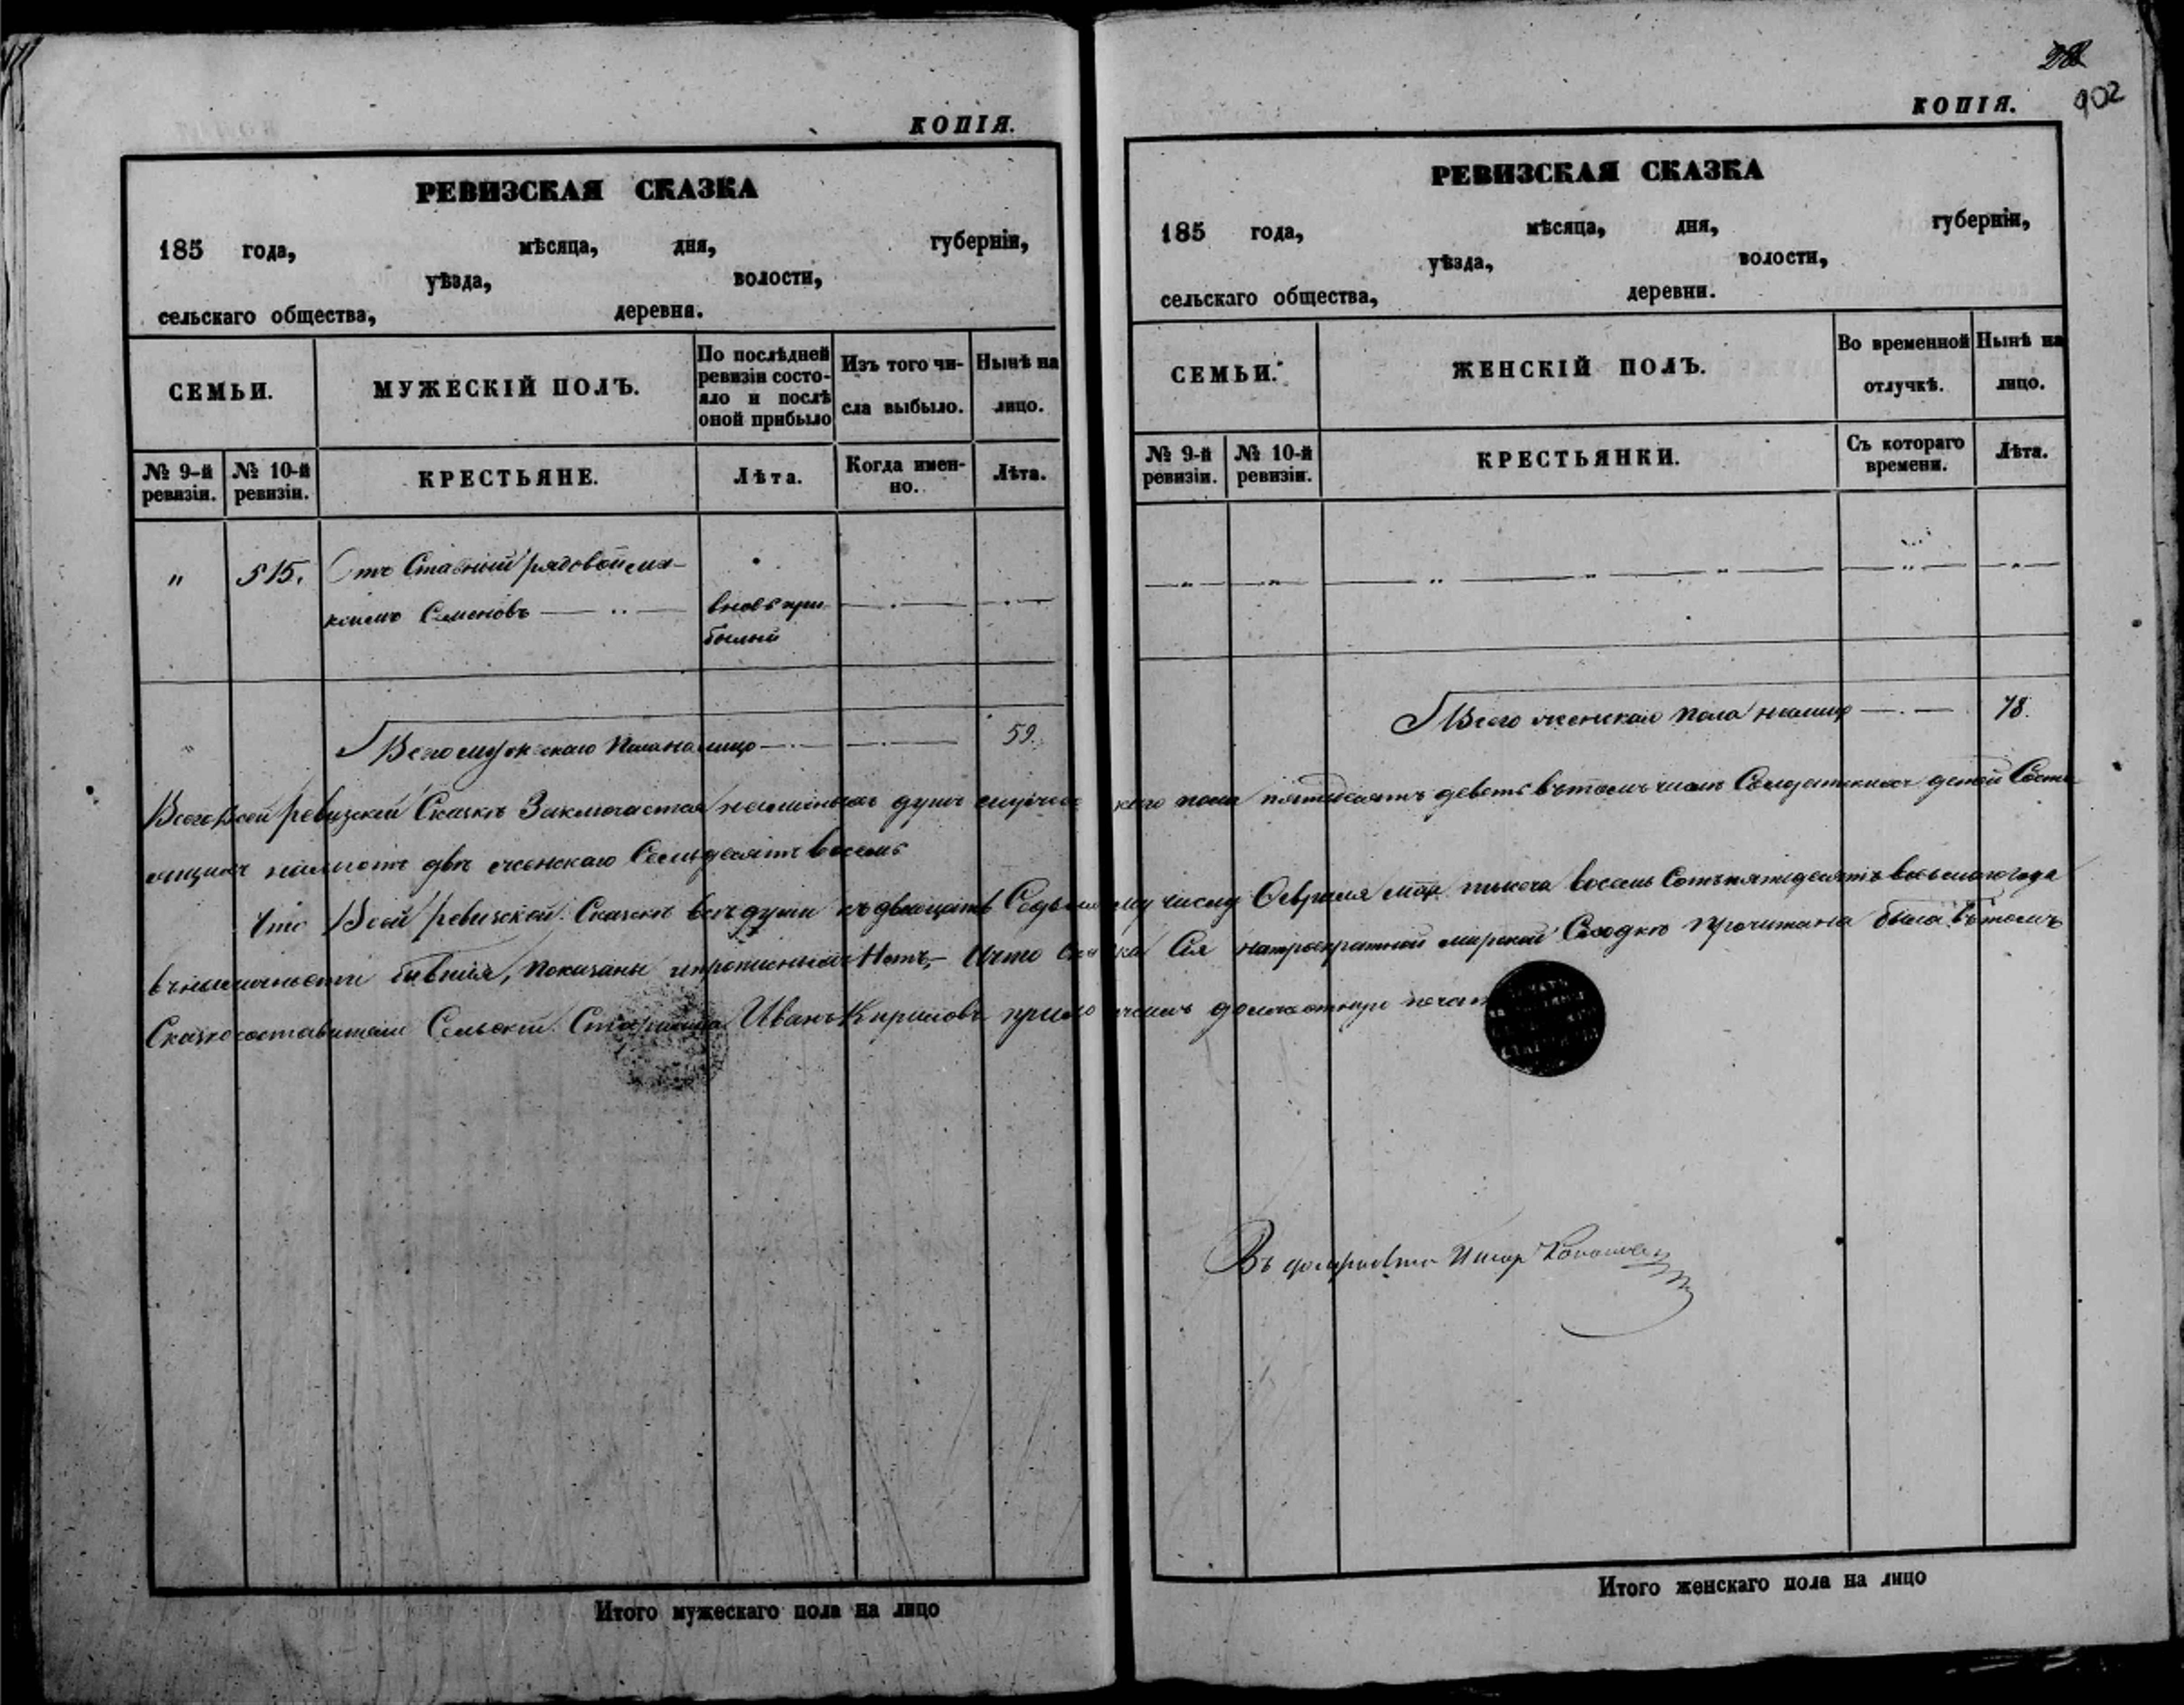 КОПІЯ.
РЕВИЗСКАЯ СКАЗКА
185 года, мѣсяца, дня, губерніи,
уѣзда, волости,
сельскаго общества, деревня.
СЕМЬИ.
МУЖЕСКІЙ ПОЛЪ.
По послѣдней
ревизіи состо-
яло и послѣ
оной прибыло
Изъ того чи-
сла выбыло.
Нынѣ на
лицо.
№ 9-й
ревизіи.
№ 10-й
ревизіи.
КРЕСТЬЯНЕ.
Лѣта.
Когда имен-
но.
Лѣта.
" 515. Отставный рядовой
Семеновъ вновь при
былый
Всего мужескаго пола налицо 59.
902
КОПІЯ.
РЕВИЗСКАЯ СКАЗКА
185 года, мѣсяца, дня, губерніи,
уѣзда, волости,
сельскаго общества, деревни.
СЕМЬИ.
ЖЕНСКІЙ ПОЛЪ.
Во временной
отлучкѣ.
Нынѣ на
лицо.
№ 9-й
ревизіи.
№ 10-й
ревизіи.
КРЕСТЬЯНКИ.
Съ котораго
времени.
Лѣта.
Всего женскаго пола налицо 78.
Всего в сей ревизской Сказкѣ Заключается наличныхъ душъ мужескаго пола пятьдесятъ деветь въ томъ числѣ Солдатскихъ детей Состо
ящихъ двѣ женскаго Семьдесятъ восемь
Что В сей ревизской Сказкѣ все души къ двадцать Седьмому числу Февраля тысяча восемь Сотъ пятидесятъ восьмого года
въ наличности бывшія, показаны и прописныхъ Нетъ, И что сказка Сія на троекратной мирской Сходкѣ Прочитана была въ томъ
Сказкосоставители Сельскій Старшина Иванъ Кириловъ приложилъ должностную печать